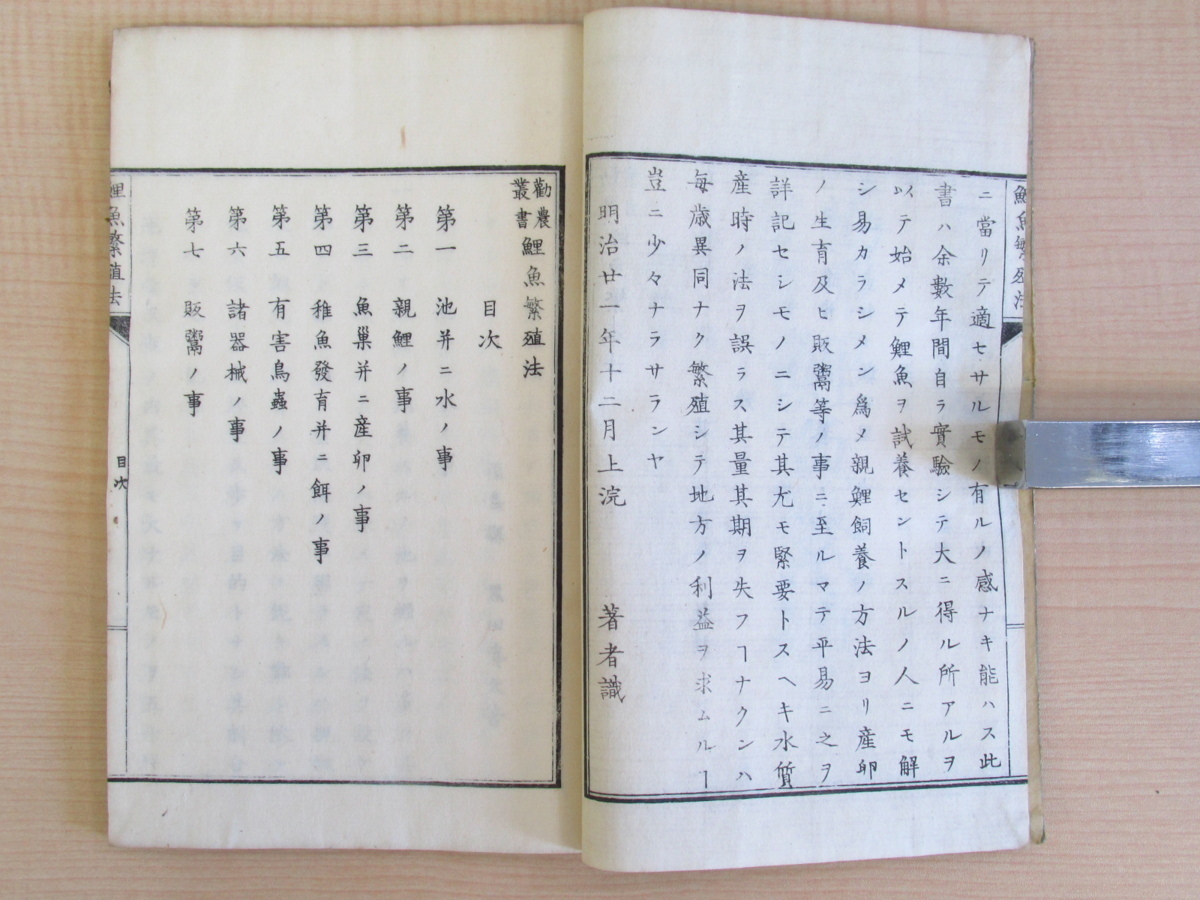 鯉魚繁殖法
ニ當リテ適セサルモノ有ルノ感ナキ能ハス此
書ハ余數年間自ラ實驗シテ大ニ得ル所アルヲ
以テ始メテ鯉魚ヲ試養セントスルノ人ニモ解
シ易カラシメン爲メ親鯉飼養ノ方法ヨリ産卵
ノ生育及ヒ販鬻等ノ事ニ至ルマテ平易ニ之ヲ
詳記セシモノニシテ其尤モ緊要トスヘキ水質
産時ノ法ヲ誤ラス其量其期ヲ失フヿナクンハ
毎歳異同ナク繁殖シテ地方ノ利益ヲ求ムルヿ
豈ニ少々ナラサランヤ
明治廿一年十二月上浣 著者識
勸農叢書 鯉魚繁殖法
目次
第一 池并ニ水ノ事
第二 親鯉ノ事
第三 魚巢并ニ産卵ノ事
第四 稚魚發育并ニ餌ノ事
第五 有害鳥蟲ノ事
第六 諸器械ノ事
第七 販鬻ノ事
鯉魚繁殖法 目次